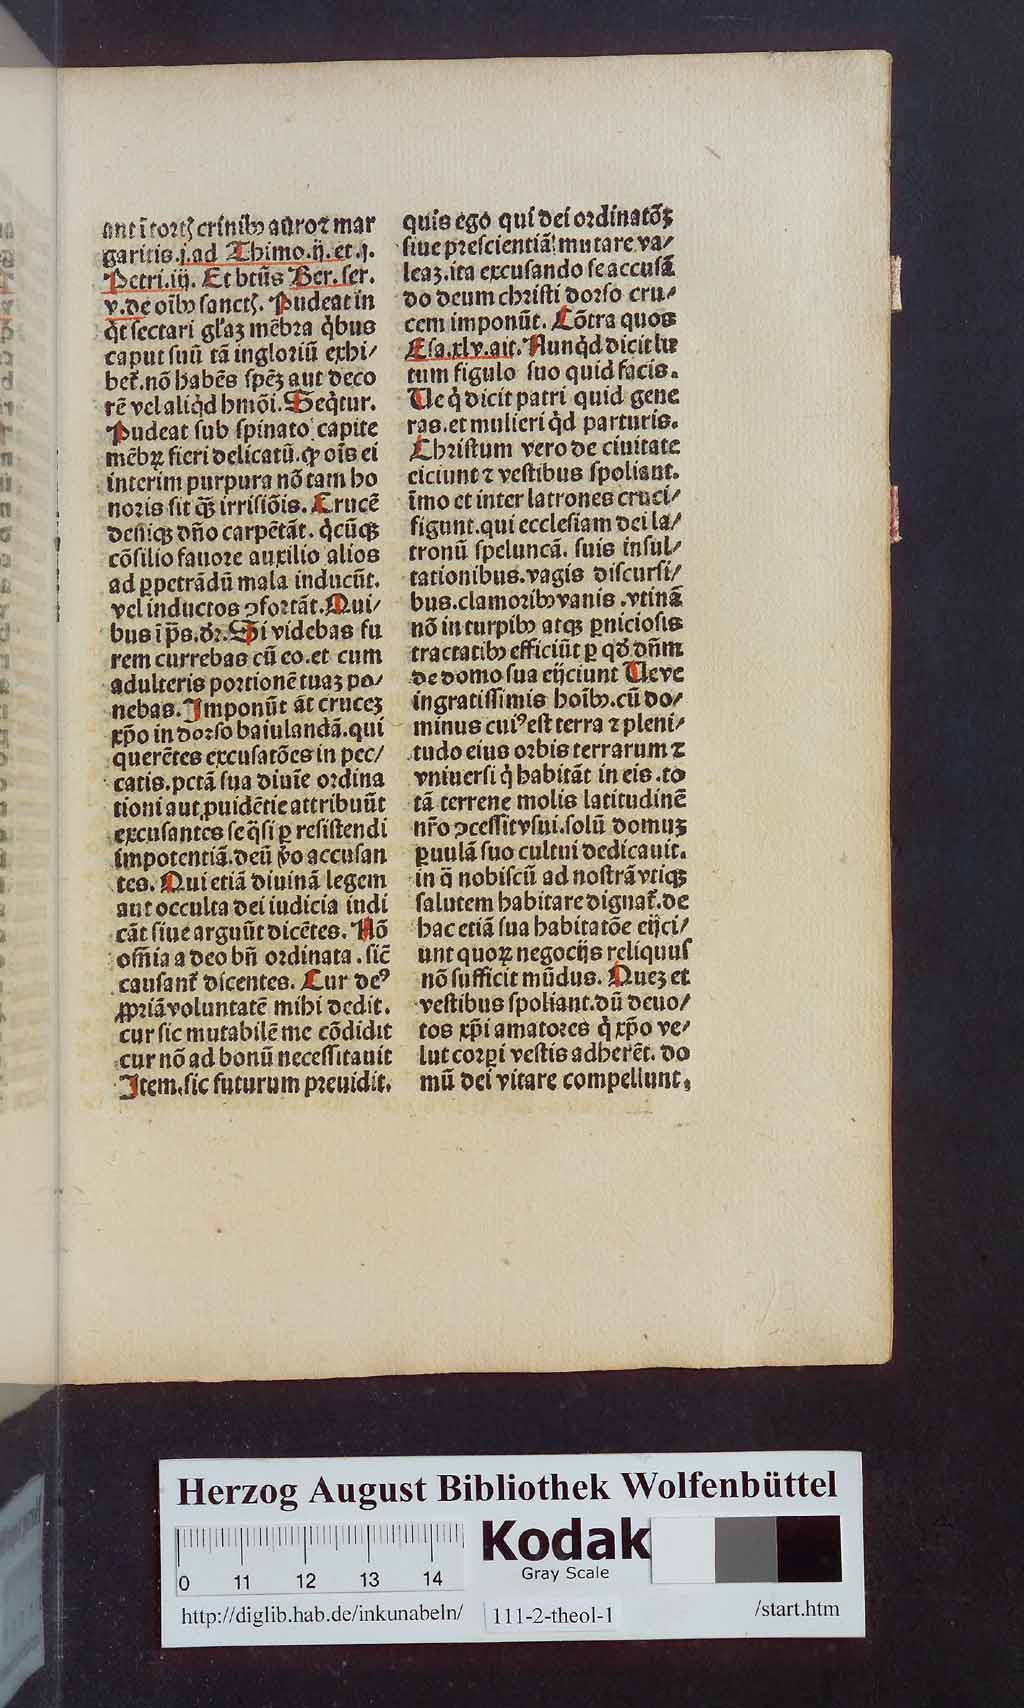 ant ī tortꝭ crinibꝰ auro ⁊ mar
garitis.j.ad Thimo.ij.et .j.
Petri.iij. Et btūs Ber. ſer.
v.de oībꝰ ſanctꝭ. Pudeat in
q̄t ſectari gl'aꝫ mēbra q̇bus
caput ſuū tā ingloriū exhi⸗
bet᷑.nō habēs ſpēꝫ aut deco
rē vel aliq̇d hmōi.Seq̇tur.
Pudeat ſub ſpinato capite
mēbꝝ fieri delicatū.ꝙ oīs ei
interim purpura nō tam ho
noris ſit qꝫ̄ irriſiōis. Crucē
deniqꝫ dn̄o carpētāt. q̇cūqꝫ
cōſilio fauore auxilio alios
ad ꝑpetrādū mala inducūt.
vel inductos ꝯfortāt.Qui⸗
bus ī p̄s.dr̄.Si videbas fu
rem currebas cū eo.et cum
adulteris portionē tuaꝫ po⸗
nebas.Imponūt āt cruceꝫ
xp̄o in dorſo baiulandā.qui
querētes excuſatōes in pec⸗
catis.pctā ſua diuīe ordina
tioni aut ꝓuidētie attribuūt
excuſantes ſe q̄ſi ꝑ reſiſtendi
impotentiā.deū v̄o accuſan
tes. Qui etiā diuinā legem
aut occulta dei iudicia iudi
cāt ſiue arguūt dicētes. Nō
oīa a deo bn̄ ordinata . ſic̄
cauſant᷑ dicentes. Cur deꝰ
ꝓpriā voluntatē mihi dedit.
cur ſic mutabilē me cōdidit
cur nō ad bonū neceſſitauit
Item.ſic futurum preuidit.
quis ego qui dei ordinatōꝫ
ſiue preſcientiā mutare va⸗
leaꝫ.ita excuſando ſe accuſā
do deum chriſti dorſo cru⸗
cem imponūt. Cōtra quos
Eſa.xlv.ait. Nunq̇d dicit lu
tum figulo ſuo quid facis.
Ue q̇ dicit patri quid gene
ras.et mulieri q̇d parturis.
Chriſtum vero de ciuitate
eiciunt ⁊ veſtibus ſpoliant.
īmo et inter latrones cruci⸗
figunt.qui eccleſiam dei la⸗
tronū ſpeluncā. ſuis inſul⸗
tationibus.vagis diſcurſi⸗
bus.clamoribꝰ vanis .vtinā
nō in turpibꝰ atqꝫ ꝑnicioſis
tractatibꝰ efficiūt ꝑ qd̄ dn̄m
de domo ſua eijciunt Ue ve
ingratiſſimis hoībꝰ.cū do⸗
minus cuiꝰ eſt terra ⁊ pleni⸗
tudo eius orbis terrarum ⁊
vniuerſi q̇ habitāt in eis .to
tā terrene molis latitudinē
nr̄o ꝯceſſit vſui.ſolū domuꝫ
ꝑuulā ſuo cultui dedicauit.
in q̄ nobiſcū ad noſtrā vtiqꝫ
ſalutem habitare dignat᷑.de
hac etiā ſua habitatōe eijci⸗
unt quoꝝ negocijs reliquuſ
nō ſufficit mūdus. Queꝫ et
veſtibus ſpoliant.dū deuo⸗
tos xp̄i amatores q̇ xp̄o ve⸗
lut corꝑi veſtis adherēt. do
mū dei vitare compellunt.
Herzog August Bibliothek Wolfenbüttel
Kodak
Gray Scale
0 11 12 13 14
http://diglib.hab.de/inkunabeln/ 111-2-theol-1 /start.htm